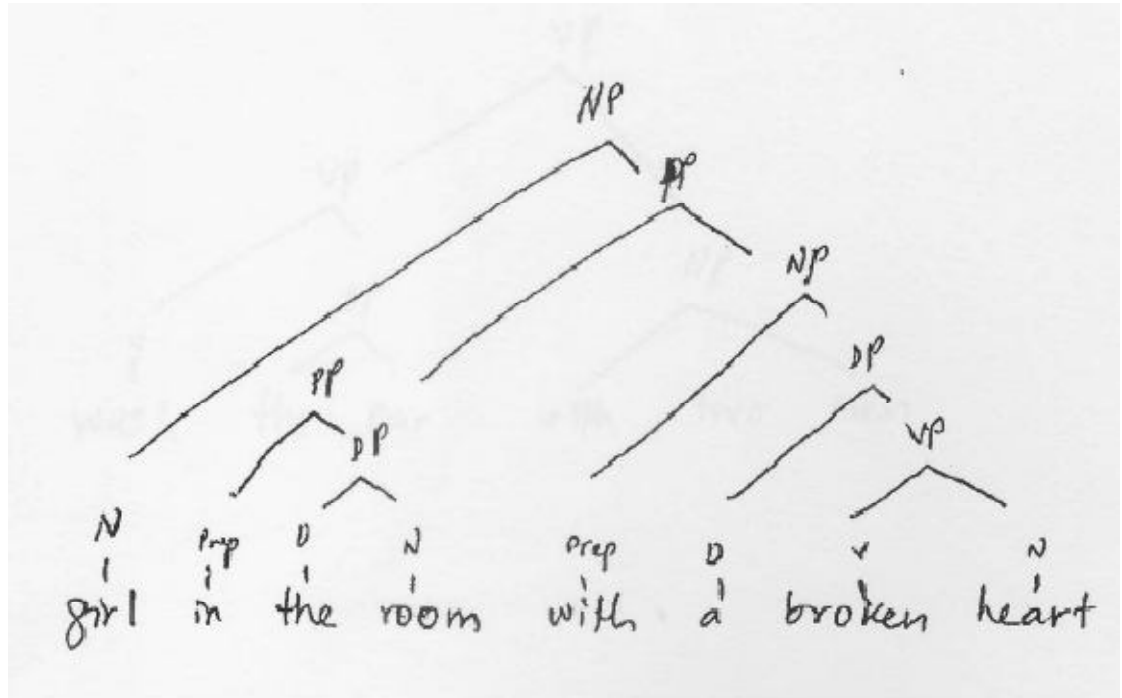 NP
NP
DP
PP
DP
VP
N Prep D N Prep D V N
girl in the room with a broken heart